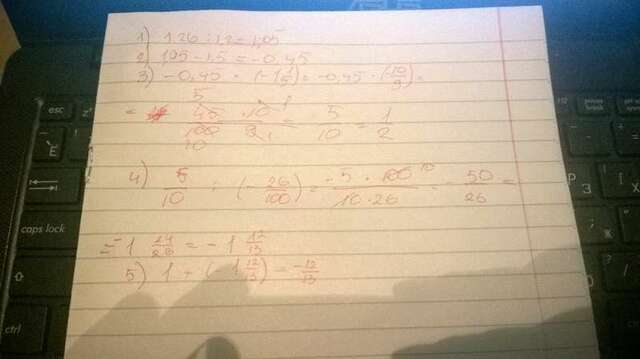 1) 1.26 : 1,2 = 1,05
2) 1,05 - 1,5 = -0,45
3) -0,45 · (-1 1/9) = -0,45 · (-10/9) =
= 45 · 10 / 100 · 9 = 5/10 = 1/2
4) 5/10 : (-26/100) = -5 · 100 / 10 · 26 = -50/26 =
= -1 24/26 = -1 12/13
5) 1 + (-1 12/13) = -12/13
esc
caps lock
ctrl